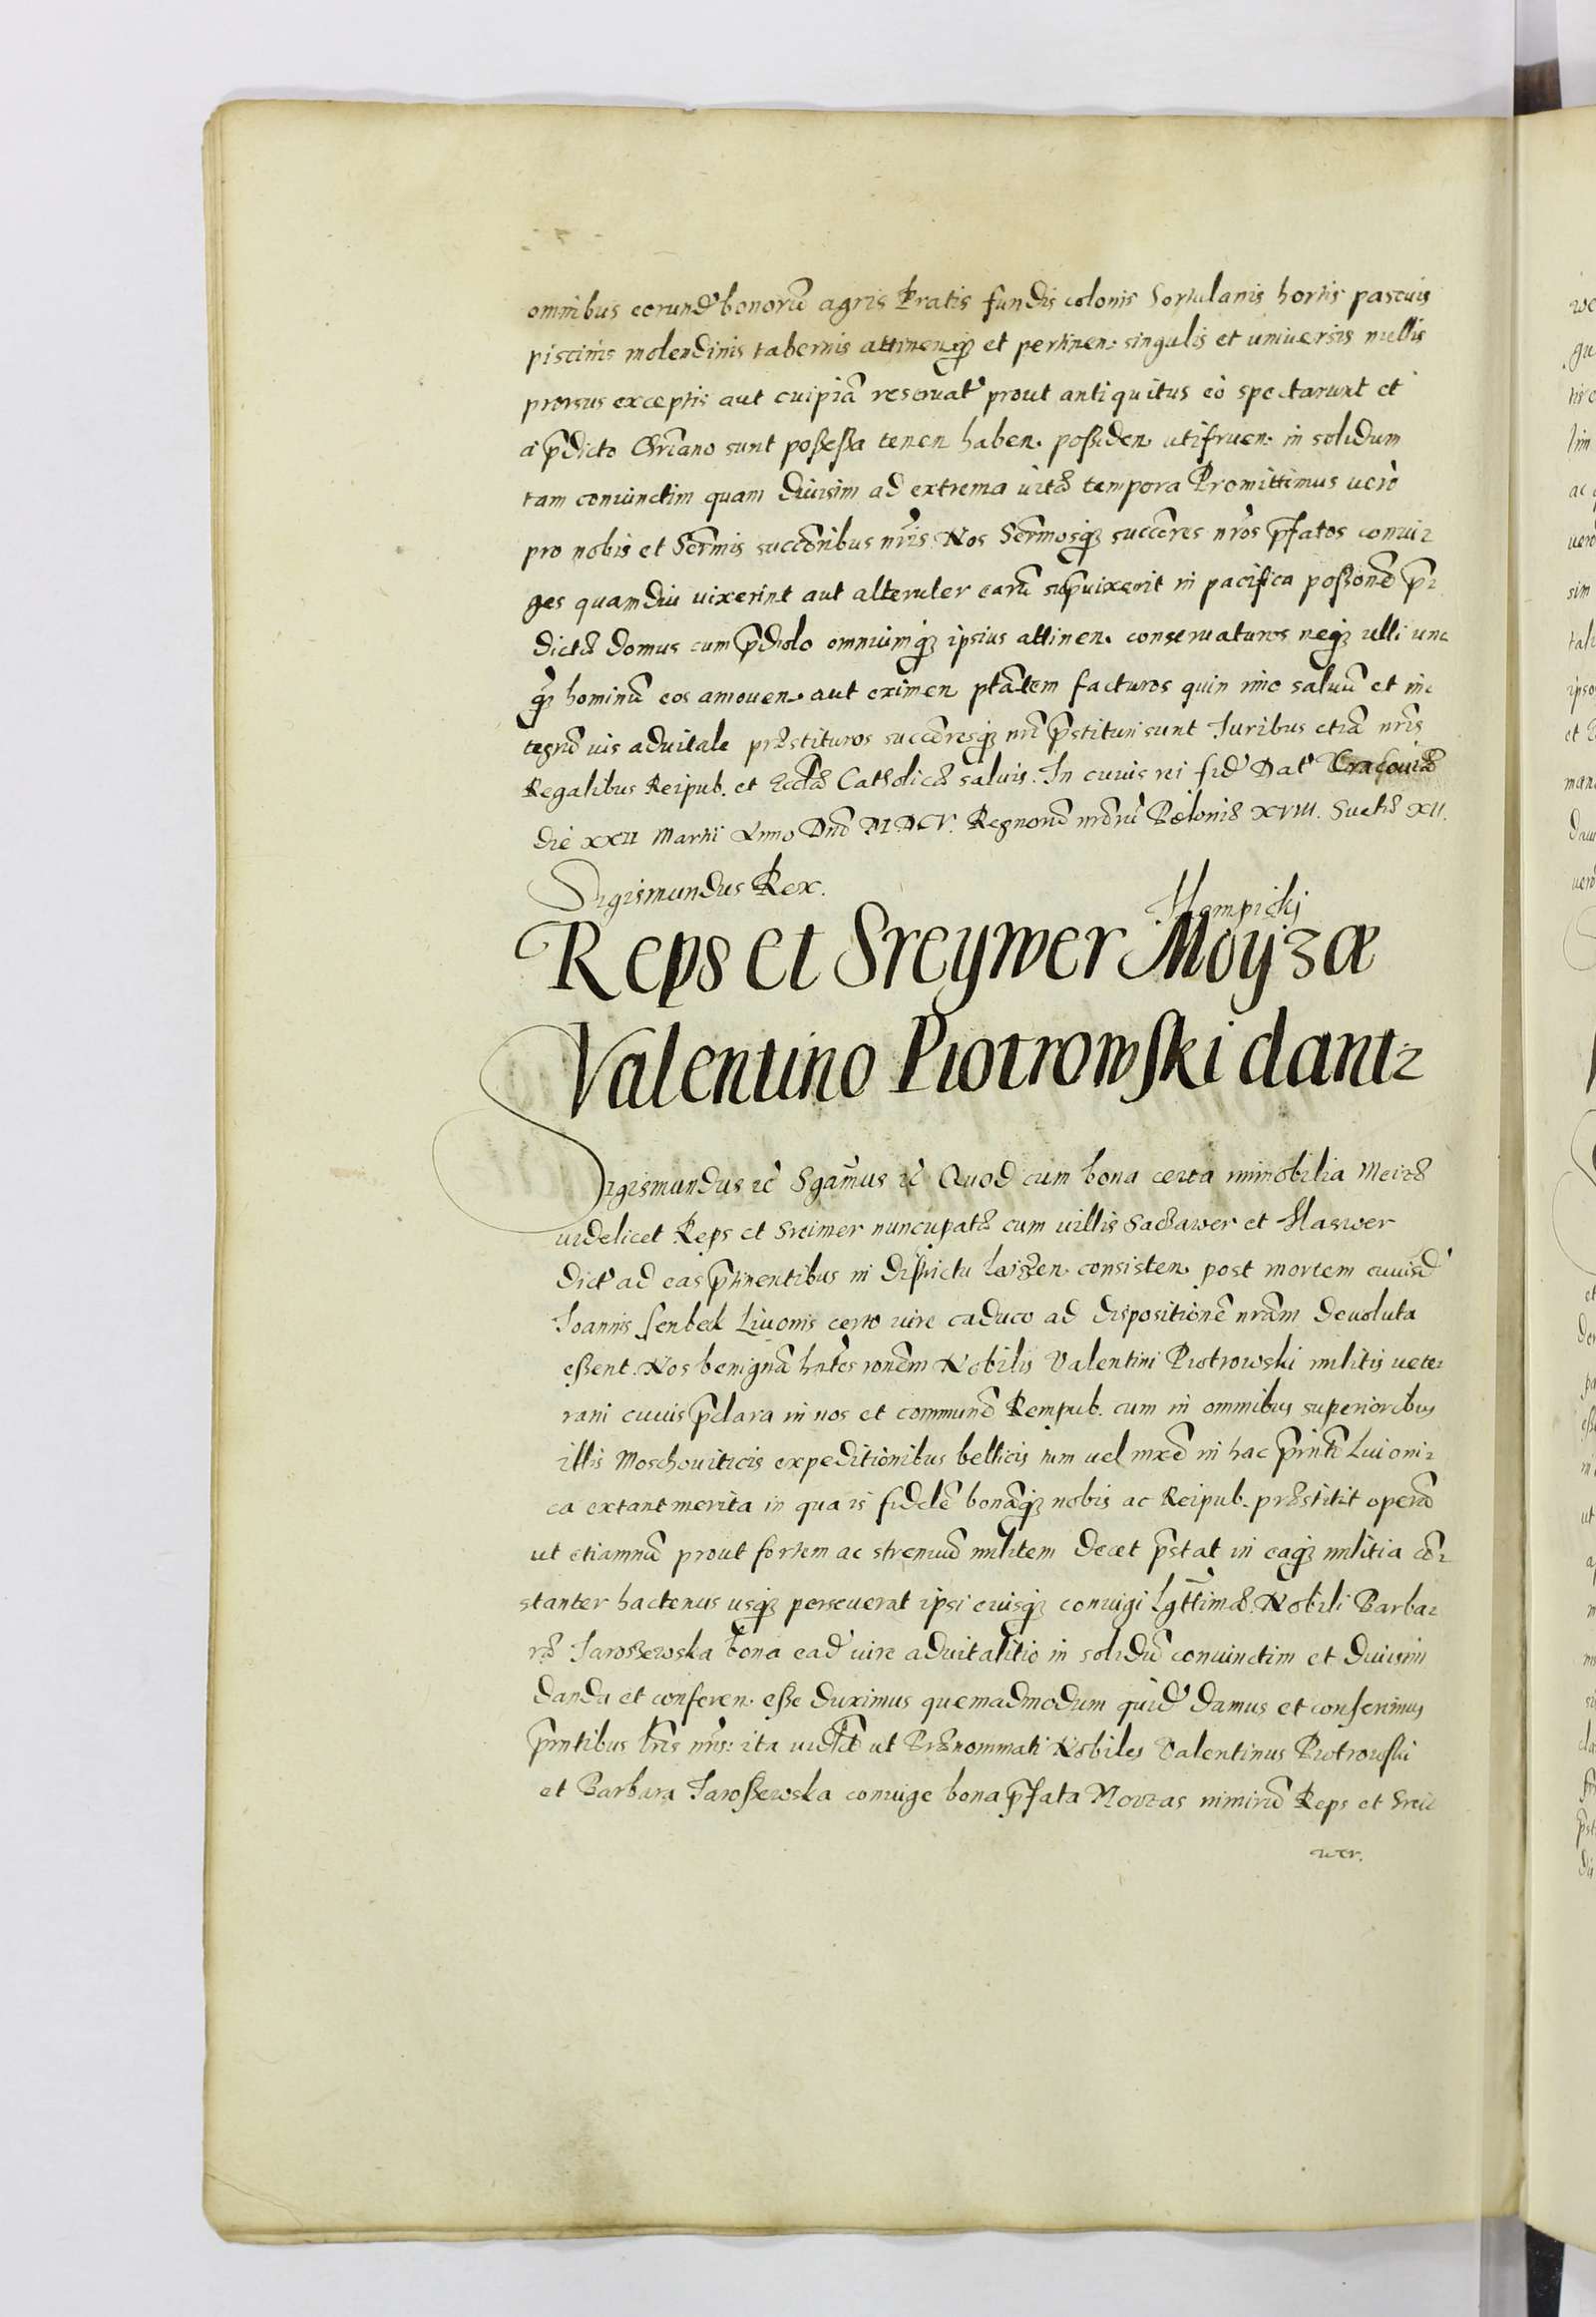 omnibus eorund' bonorũ agris Pratis fundis colonis hortulanis hortis pascuis
piscinis molendinis tabernis attinenq́ȝ et pertinen: singulis et universis nullis
prorsus exceptis aut cuipiã reservat' prout antiquitus eò spectarunt et
à p̃dicto Chriano sunt poßeßa tenen haben. poßiden. utifruen. in solidum
tam coniunctim quam divisim ad extrema vitæ tempora Promittimus verò
pro nobis et Sermis succoribus nris. Nos Sermosq́ȝ succores nros p̃fatos coniu-
ges quamdiu vixerint aut alteruter earũ sup̃vixerit in pacifica poßionẽ p̃-
dictæ domus cum p̃diolo omniumq́ȝ ipsius attinen. conservaturos neq́ȝ ulli un-
q́ȝ hominũ eos amoven. aut eximen ptatem facturos quin imo salvũ et in-
tegrũ ius advitale præstituros succoresq́ȝ nri p̃stituri sunt Juribus etiã nris
Regalibus Reipub. et Ecclæ Catholicæ salvis. In cuius rei fid' Dat' Cracoviæ
die XXII Martii Anno Dnĩ MDCV. Regnorũ nrorũ Poloniæ XVIII. Sueciæ XII.
Sigismundus Rex.
Hempicki
Reps et Sreywer Moyzæ
Valentino Piotrowski dant-
Sigismundus ec̃ Sgamus ec̃ Quod cum bona certa immobilia Meizæ
videlicet Reps et Sreimer nuncupatæ cum villis Sackawer et Haswer
dict' ad eas p̃tinentibus in districtu laisen. consisten. post mortem cuiusd'
Joannis senbek Livonis certo iure caduco ad dispositionẽ nram devoluta
eßent. Nos benignã hntes ronem Nobilis Valentini Piotrowski militis vete-
rani cuius p̃clara in nos et communẽ Rempub. cum in omnibus superioribus
illis Moschoviticis expeditionibus bellicis tum vel mxẽ in hac p̃sntẽ Livoni-
ca extant merita in qua is fidelẽ bonãq́ȝ nobis ac Reipub. præstitit operã
ut etiamnũ prout fortem ac strenuũ militem decet p̃stat in eaq́ȝ militia cõ-
stanter hactenus usq́ȝ perseverat ipsi eiusq́ȝ coniugi lgttimæ. Nobili Barba-
ræ Jaroszewska bona ead' iure advitalitio in solidũ coniunctim et divisim
danda et conferen. eße duximus quemadmodum quid' damus et conferimus
p̃sntibus lris nris: ita videlt ut Prænominati Nobiles Valentinus Piotrowski
et Barbara Jaroßewska coniuge bona p̃fata Moyzas nimirũ Reps et Srei-
wer.